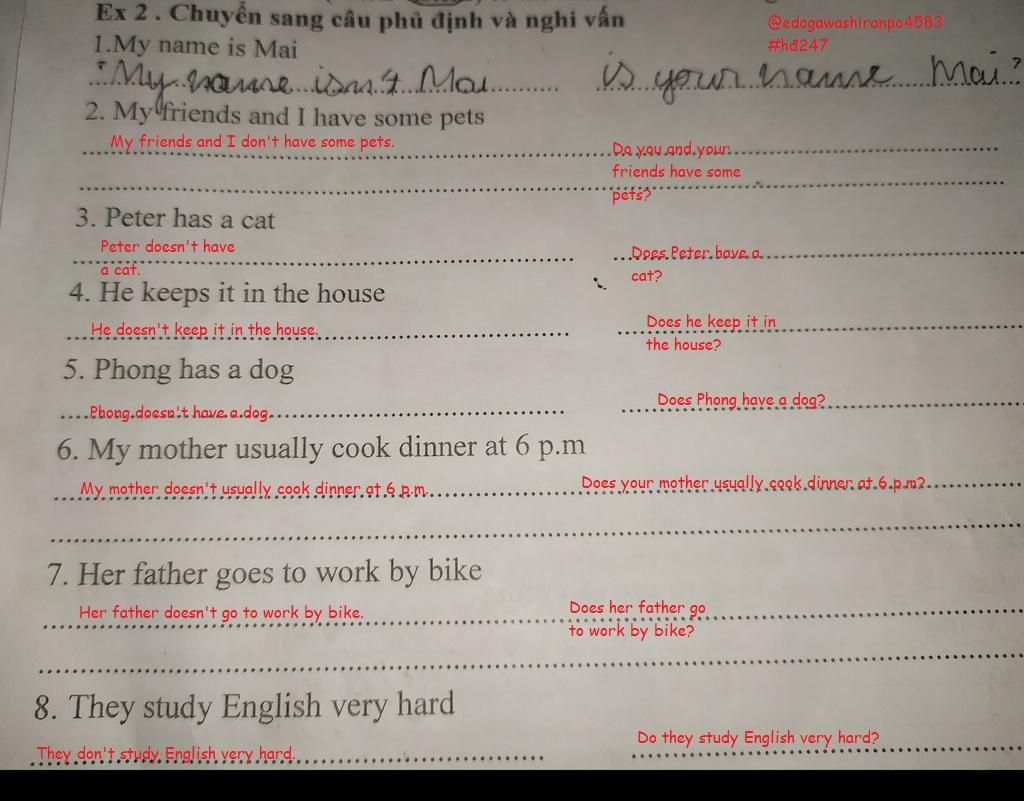 Ex 2 . Chuyển sang câu phủ định và nghi vấn
@edogawashiranpo4583
#hd247
1.My name is Mai
My name isn't Mai is your name Mai?
2. My friends and I have some pets
My friends and I don't have some pets.
Do you and your
friends have some
pets?
3. Peter has a cat
Peter doesn't have
a cat.
Does Peter have a
cat?
4. He keeps it in the house
He doesn't keep it in the house.
Does he keep it in
the house?
5. Phong has a dog
Phong doesn't have a dog.
Does Phong have a dog?
6. My mother usually cook dinner at 6 p.m
My mother doesn't usually cook dinner at 6 p.m.
Does your mother usually cook dinner at 6 p.m?
7. Her father goes to work by bike
Her father doesn't go to work by bike.
Does her father go
to work by bike?
8. They study English very hard
They don't study English very hard.
Do they study English very hard?